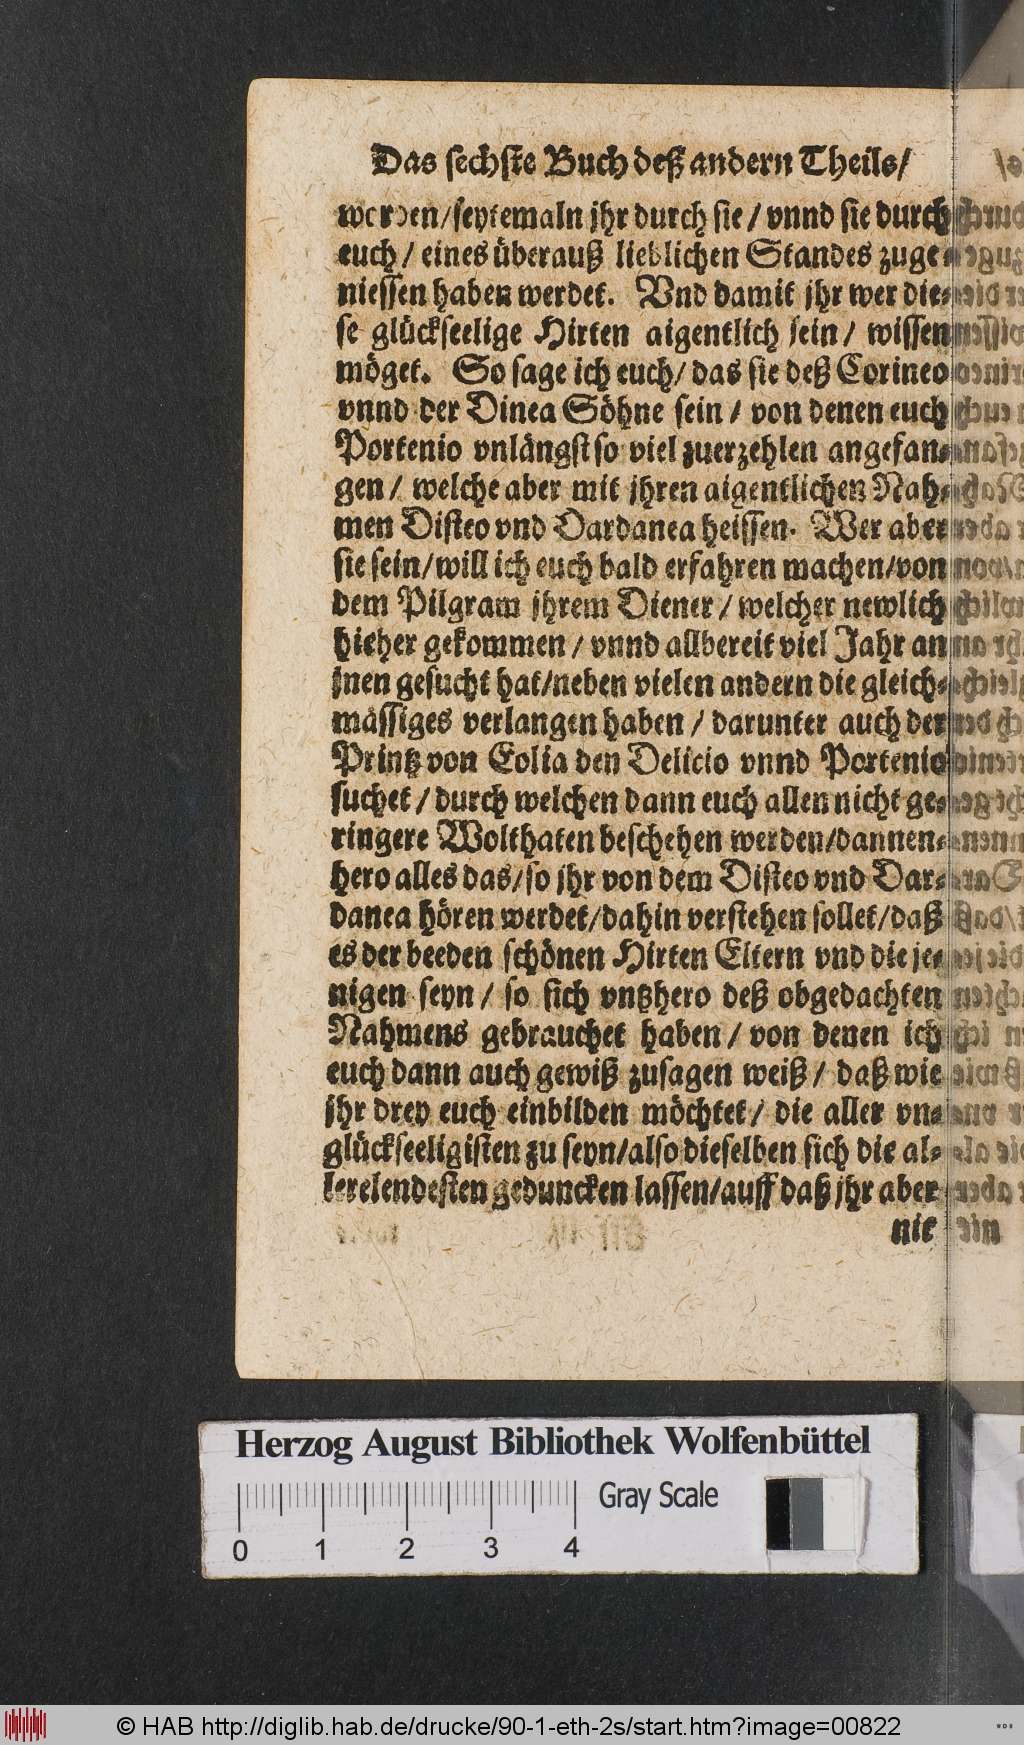 Das sechste Buch deß andern Theils/
werden/seytemaln jhr durch sie / vnnd sie durch
euch / eines überauß lieblichen Standes zuge-
niessen haben werdet. Vnd damit jhr wer die-
se glückseelige Hirten aigentlich sein / wissen
möget. So sage ich euch/ das sie deß Corineo
vnnd der Dinea Söhne sein / von denen euch
Portenio vnlängst so viel zuerzehlen angefan-
gen / welche aber mit jhren aigentlichen Nah-
men Disteo vnd Dardanea heissen. Wer aber
sie sein/will ich euch bald erfahren machen/von
dem Pilgram jhrem Diener / welcher newlich
hieher gekommen / vnnd allbereit viel Jahr an
jnen gesucht hat/neben vielen andern die gleich-
mässiges verlangen haben / darunter auch der
Printz von Eolia den Delicio vnnd Portenio
suchet / durch welchen dann euch allen nicht ge-
ringere Wolthaten beschehen werden/dannen-
hero alles das/so jhr von dem Disteo vnd Dar-
danea hören werdet/dahin verstehen sollet/daß
es der beeden schönen Hirten Eltern vnd die je-
nigen seyn / so sich vntzhero deß obgedachten
Nahmens gebrauchet haben / von denen ich
euch dann auch gewiß zusagen weiß / daß wie
jhr drey euch einbilden möchtet / die aller vn-
glückseeligisten zu seyn/also dieselben sich die al-
lerelendesten geduncken lassen/auff daß jhr aber
nie
Herzog August Bibliothek Wolfenbüttel
Gray Scale
0 1 2 3 4
© HAB http://diglib.hab.de/drucke/90-1-eth-2s/start.htm?image=00822